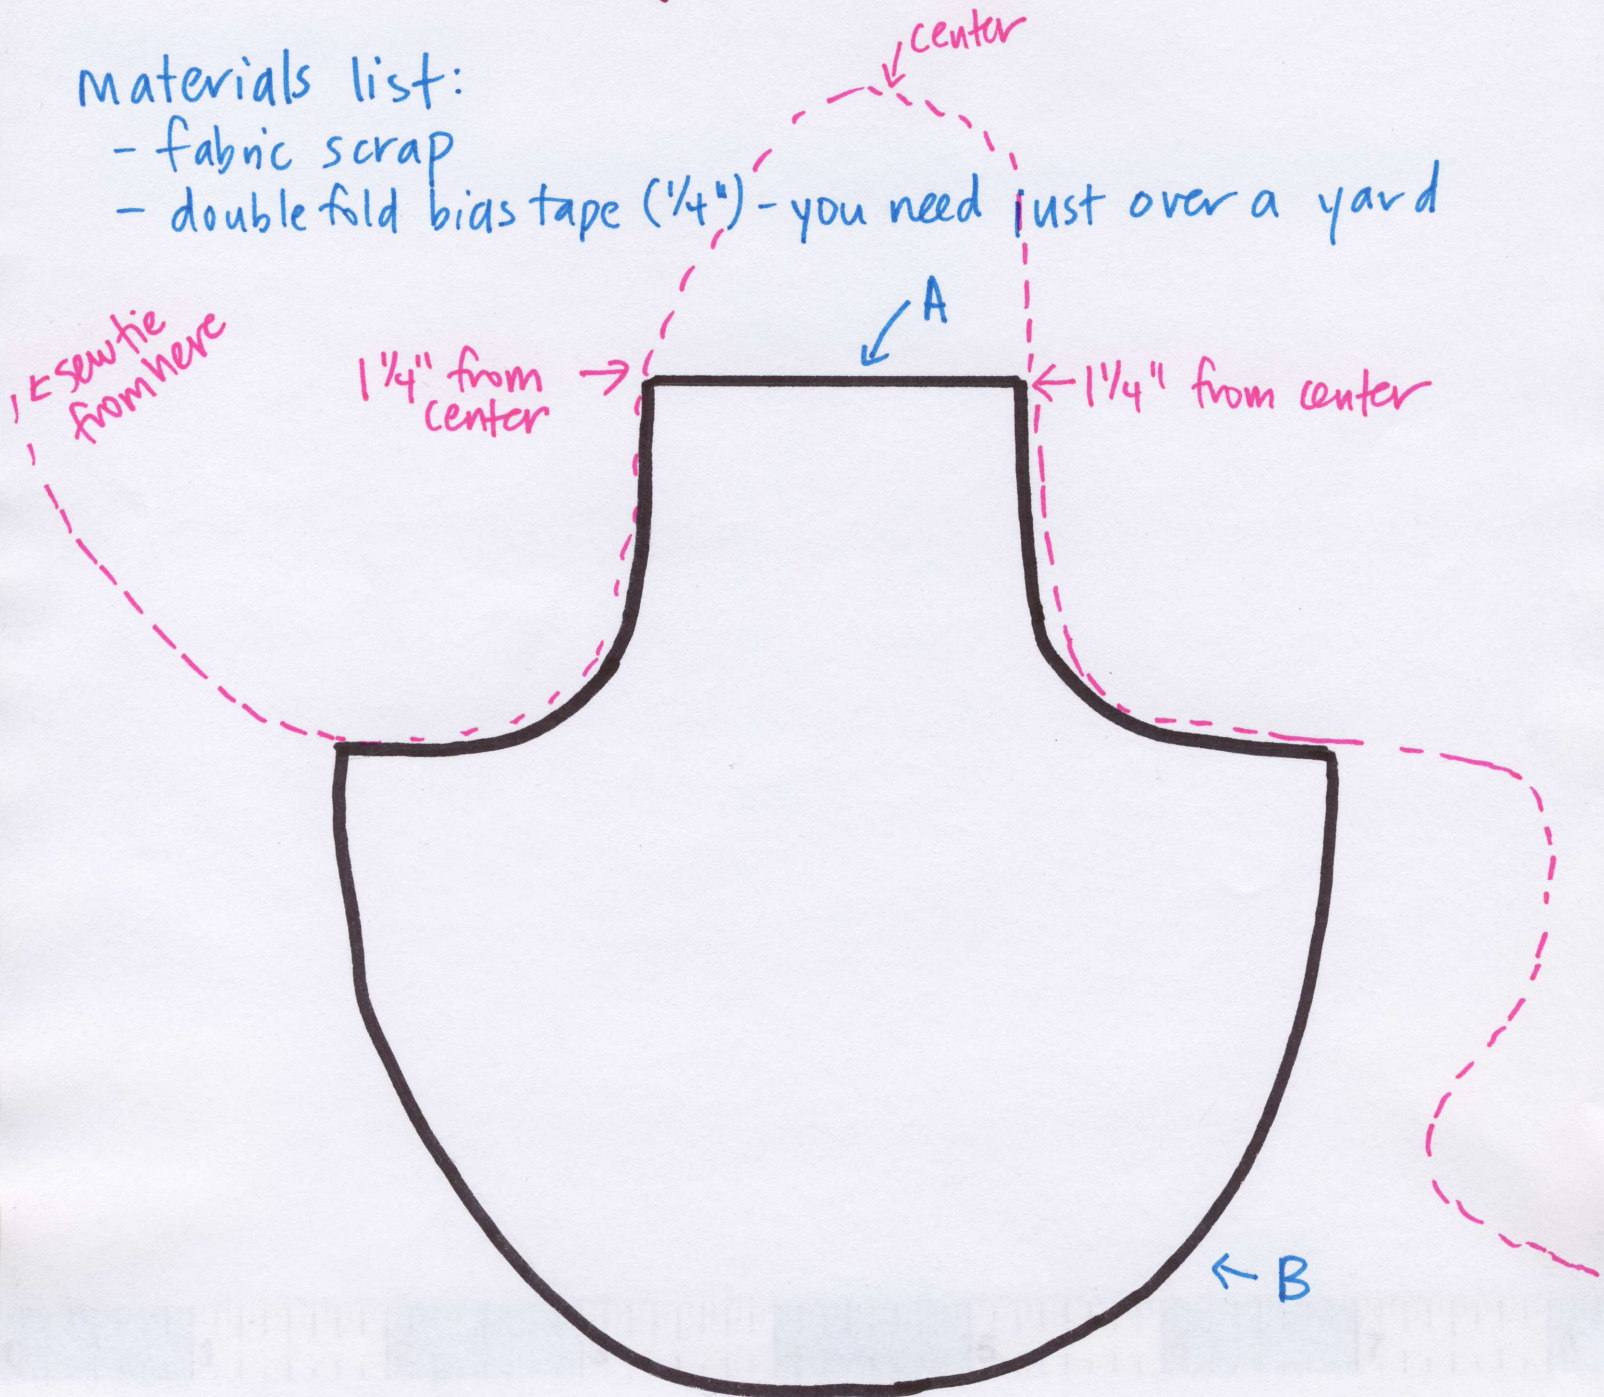 center
materials list:
- fabric scrap
- double fold bias tape (1/4") - you need just over a yard
A
← sew tie
from here
1 1/4" from →
center
← 1 1/4" from center
← B